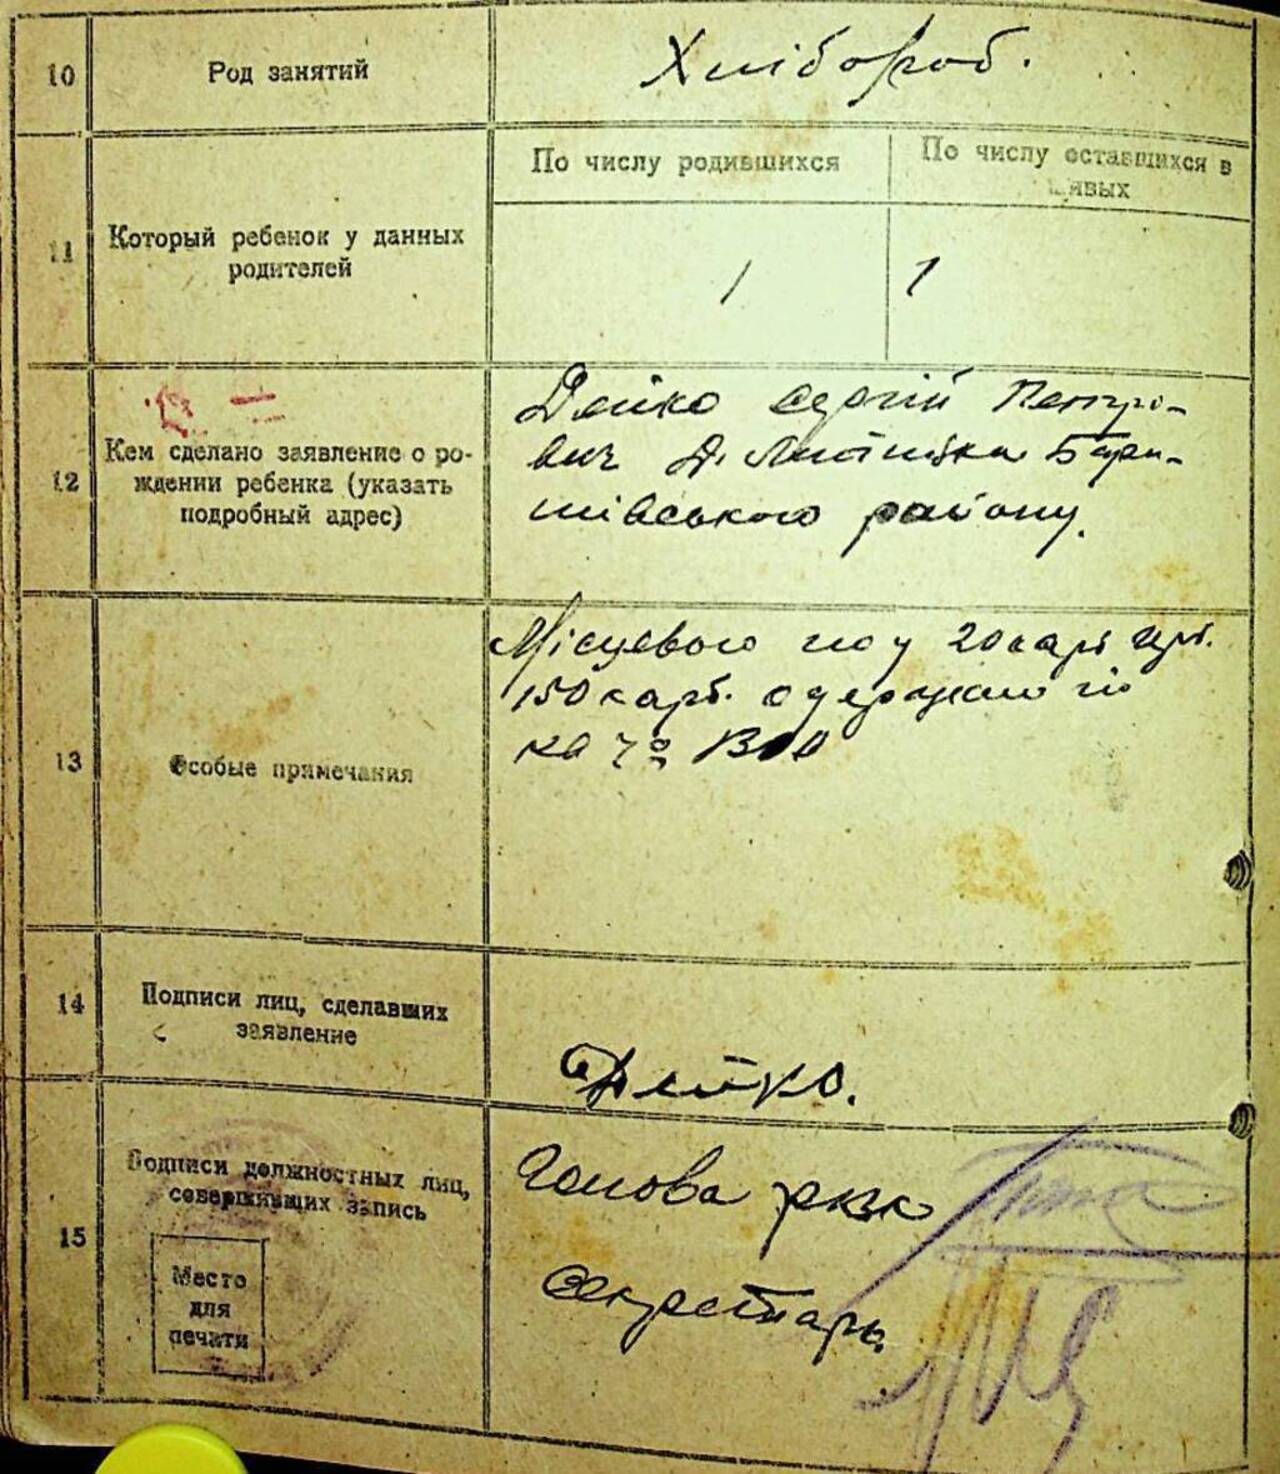 10
Род занятий
Хлібороб.
11
Который ребенок у данных
родителей
По числу родившихся
По числу оставшихся в
живых
1
1
12
Кем сделано заявление о ро-
ждении ребенка (указать
подробный адрес)
Дейко Сергій Петро-
вич Д. Бари-
шівського району.
13
Особые примечания
Місцевого 20 карб
150 карб. одержано
14
Подписи лиц, сделавших
заявление
Дейко.
15
Подписи должностных лиц,
совершивших запись
Место
для
печати
Голова
Секретарь